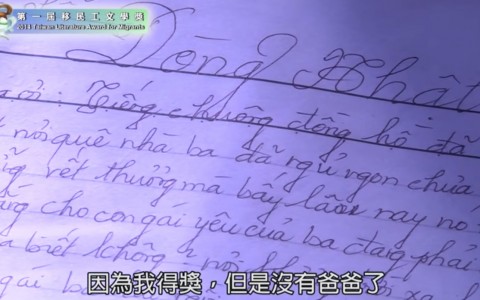 第一屆移民工文學獎
2014 Taiwan Literature Award for Migrants
Dòng Nhật
ơi: Tiếng chuông đồng hồ đã
nơi quê nhà ba đã ngủ ngon chưa
vết thương mà bấy lâu nay nó
cho con gái yêu của ba đang phải
biết không
gái ba
因為我得獎，但是沒有爸爸了